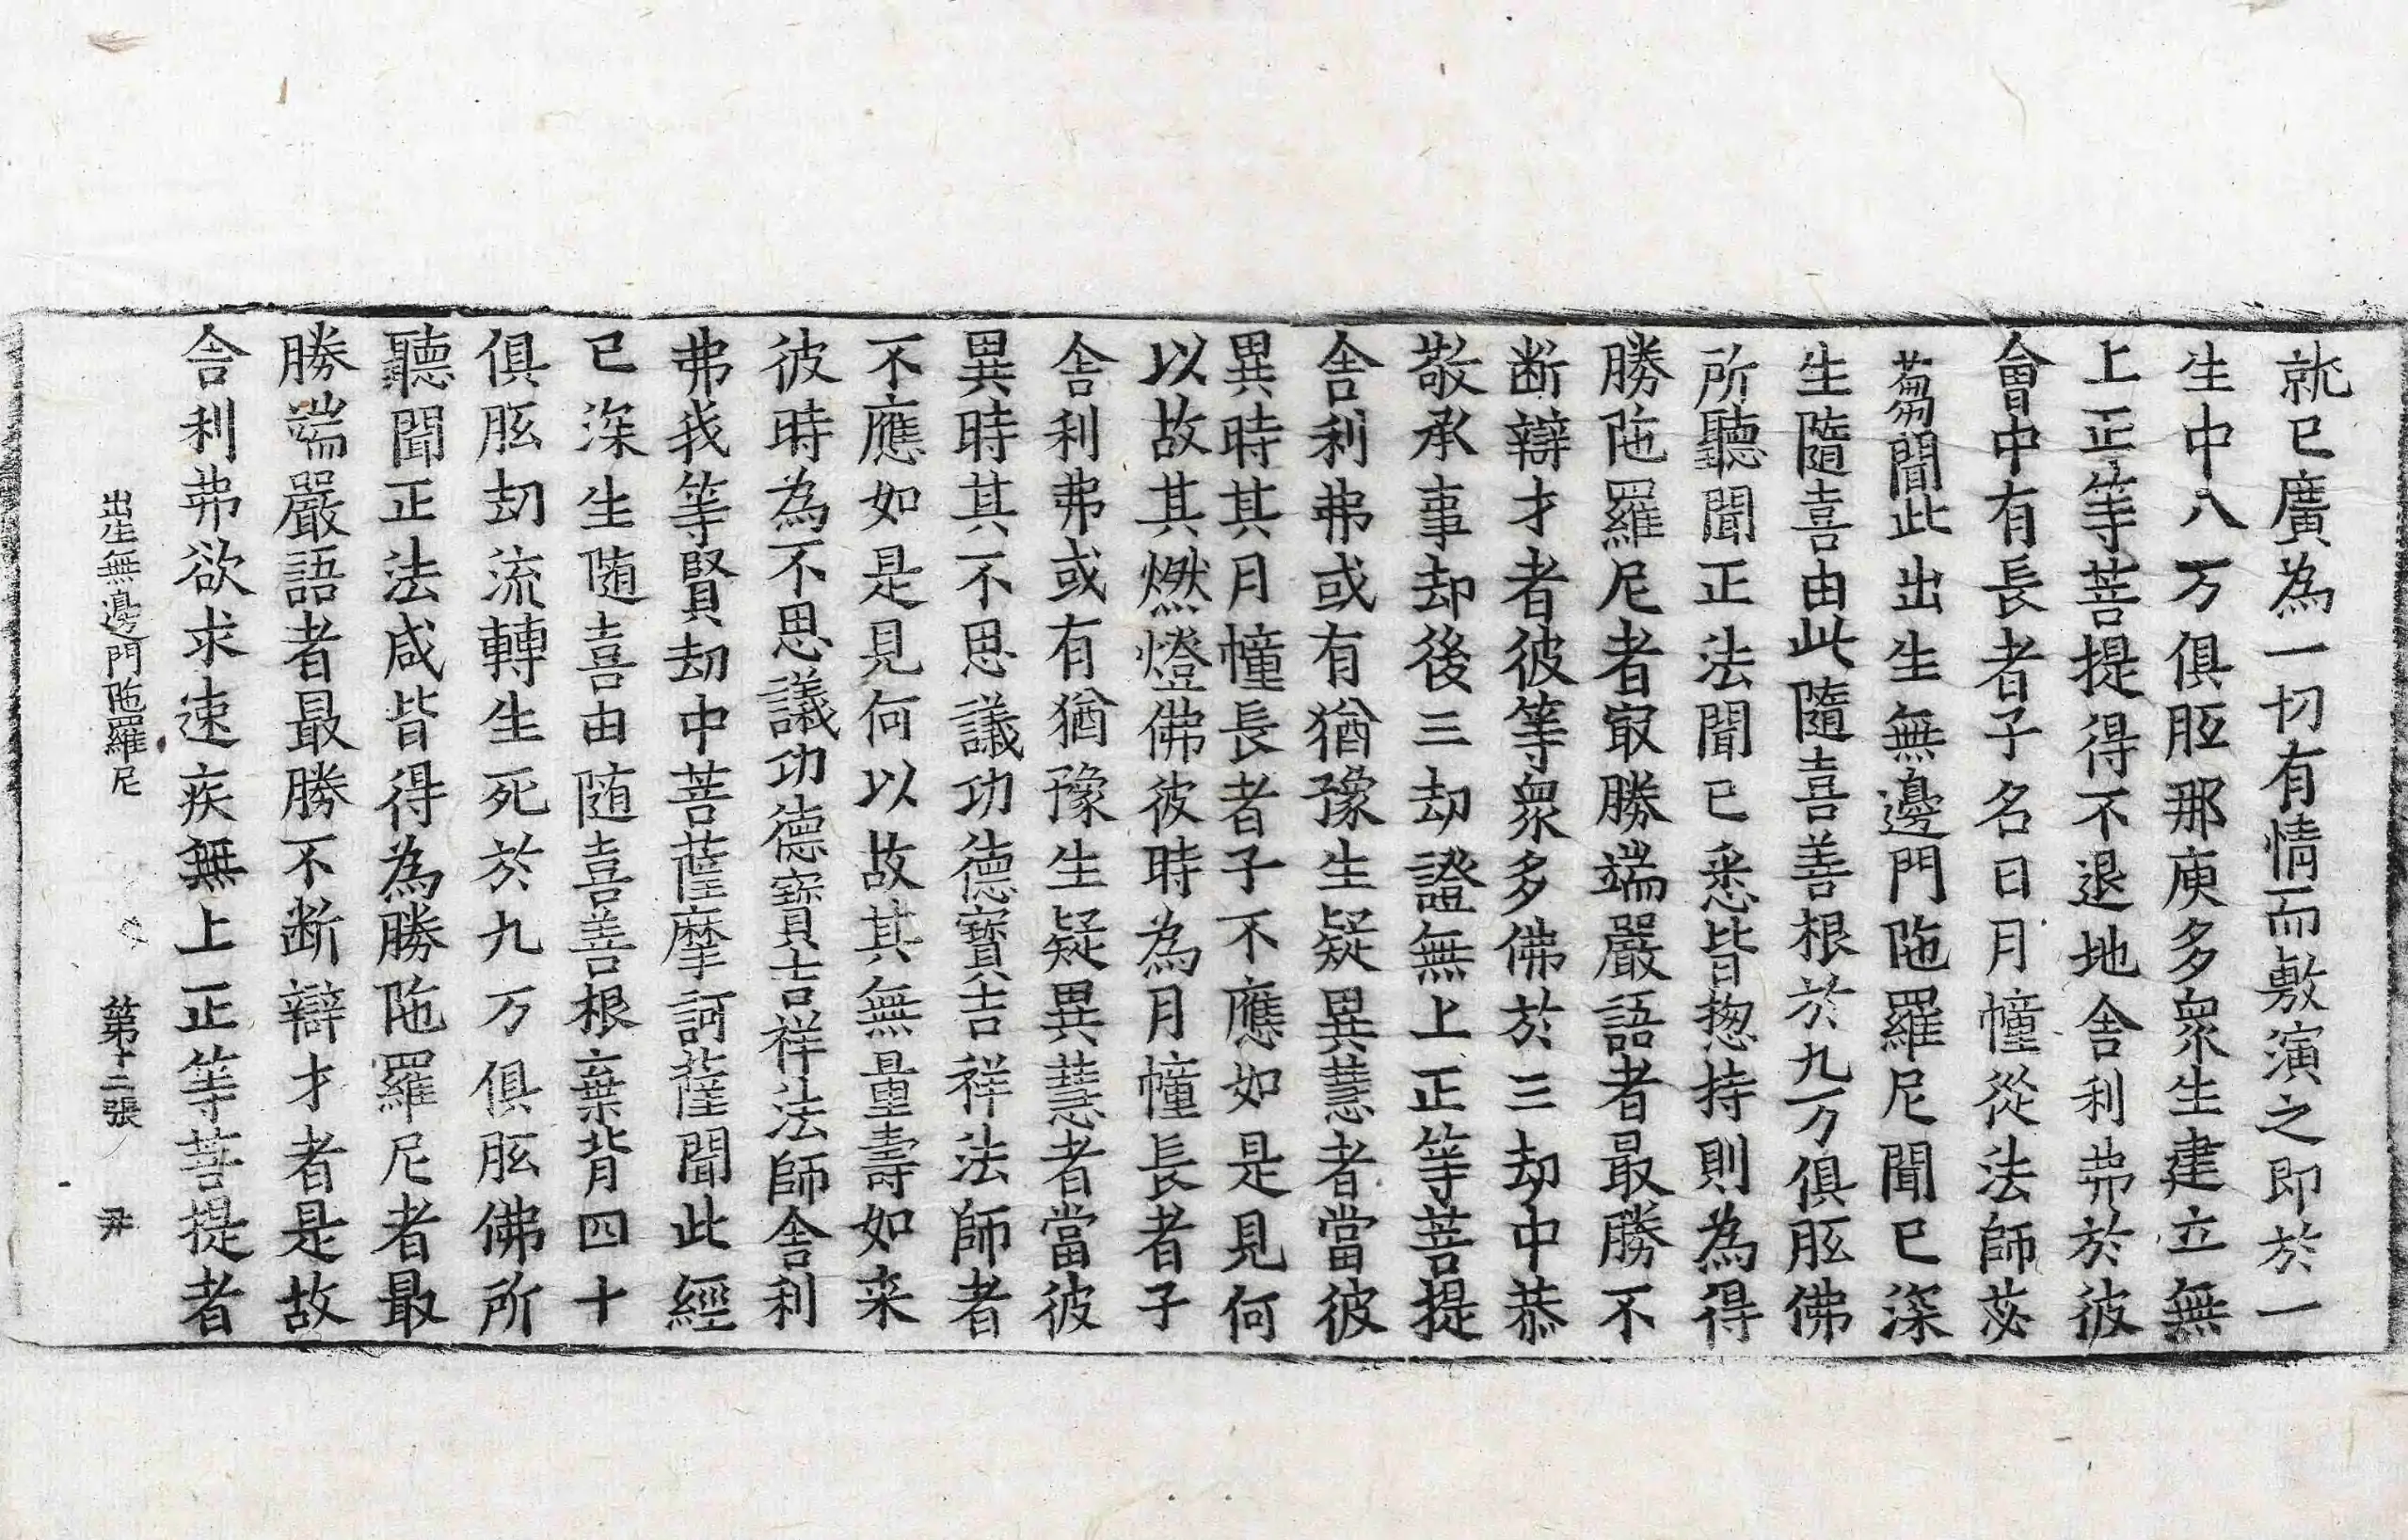 就已廣為一切有情而敷演之即於一
生中八万俱胝那庾多衆生建立無
上正等菩提得不退地舍利弗於彼
會中有長者子名曰月幢從法師苾
蒭聞此出生無邊門陁羅尼聞已深
生隨喜由此隨喜善根於九万俱胝佛
所聽聞正法聞已悉皆揔持則為得
勝陁羅尼者㝡勝端嚴語者最勝不
断辯才者彼等衆多佛於三劫中恭
敬承事却後三劫證無上正等菩提
舍利弗或有猶豫生疑異慧者當彼
異時其月幢長者子不應如是見何
以故其燃燈佛彼時為月幢長者子
舍利弗或有猶豫生疑異慧者當彼
異時其不思議功德寶吉祥法師者
不應如是見何以故其無量壽如来
彼時為不思議功德寶吉祥法師舍利
弗我等賢劫中菩薩摩訶薩聞此經
已深生随喜由随喜善根棄背四十
俱胝劫流轉生死於九万俱胝佛所
聽聞正法咸皆得為勝陁羅尼者最
勝端嚴語者最勝不断辯才者是故
舍利弗欲求速疾無上正等菩提者
出生無邊門陁羅尼 第十二張 尹